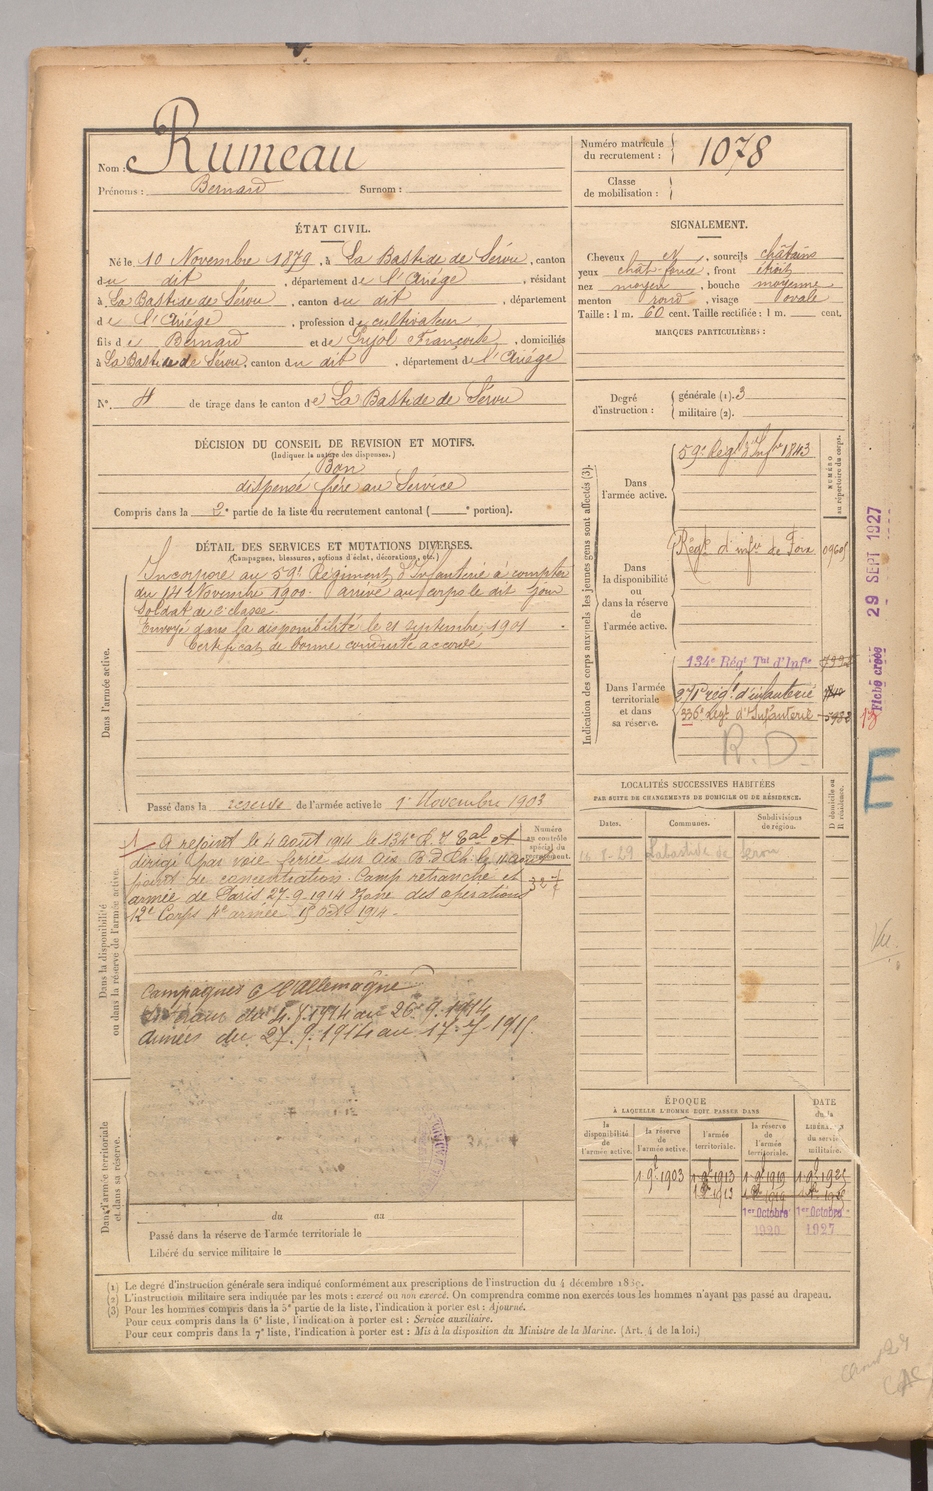 Nom : Rumeau
Prénoms : Bernard Surnom :
Numéro matricule du recrutement : 1078
Classe de mobilisation :
ÉTAT CIVIL.
Né le 10 Novembre 1879, à La Bastide de Sérou, canton
du dit, département de l'Ariège, résidant
à La Bastide de Sérou, canton du dit, département
de l'Ariège, profession de cultivateur
fils de Bernard et de Pujol Françoise, domiciliés
à La Bastide de Sérou, canton du dit, département de l'Ariège
N° 4 de tirage dans le canton de La Bastide de Sérou
SIGNALEMENT.
Cheveux et, sourcils châtains
yeux chât foncé, front étroit
nez moyen, bouche moyenne
menton rond, visage ovale
Taille : 1 m. 60 cent. Taille rectifiée : 1 m. cent.
MARQUES PARTICULIÈRES :
Degré d'instruction : générale (1). 3
militaire (2).
DÉCISION DU CONSEIL DE REVISION ET MOTIFS.
(Indiquer la nature des dispenses.)
Bon
dispensé frère au Service
Compris dans la 2e partie de la liste du recrutement cantonal ( e portion).
DÉTAIL DES SERVICES ET MUTATIONS DIVERSES.
(Campagnes, blessures, actions d'éclat, décorations, etc.)
Dans l'armée active.
Incorporé au 59e Régiment d'Infanterie à compter
du 14 Novembre 1900. arrivé au corps le dit jour
Soldat de 2e classe.
Envoyé dans la disponibilité le 21 Septembre 1901
Certificat de bonne conduite accordé
Passé dans la réserve de l'armée active le 1er Novembre 1903
Dans la disponibilité ou dans la réserve de l'armée active.
Numéro au contrôle spécial du
A rejoint le 4 août 1914 le 134e R. I. et
dirigé par voie ferrée sur
point de concentration. Camp retranché et
armée de Paris 27-9-1914 Zone des opérations
12e Corps 4e armée 15 Oct 1914.
Campagnes C l'Allemagne
du 4.8.1914 au 26.9.1914
Armées du 27.9.1914 au 17-7-1915.
Dans l'armée territoriale et dans sa réserve.
du au
Passé dans la réserve de l'armée territoriale le
Libéré du service militaire le
Indication des corps auxquels les jeunes gens sont affectés (3).
NUMÉRO au répertoire du corps.
Dans l'armée active.
59e Régt d'Infie 1843
Dans la disponibilité ou dans la réserve de l'armée active.
Régt d'infie de Foix
Dans l'armée territoriale et dans sa réserve.
134e Régt Tal d'Infie
271e régt d'infanterie
336e Régt d'Infanterie
R.D.
29 SEPT 1927
Fiche créée
E
LOCALITÉS SUCCESSIVES HABITÉES
PAR SUITE DE CHANGEMENTS DE DOMICILE OU DE RÉSIDENCE.
D domicile ou R résidence.
Dates. Communes. Subdivisions de région.
Labastide de Sérou
ÉPOQUE
À LAQUELLE L'HOMME DOIT PASSER DANS
DATE de la LIBÉRATION du service militaire.
la disponibilité de l'armée active. la réserve de l'armée active. l'armée territoriale. la réserve de l'armée territoriale.
1 9e 1903 1 9e 1913 1 9e 1919 1 9e 1925
1er Octobre 1920 1er Octobre 1927
Vu
(1) Le degré d'instruction générale sera indiqué conformément aux prescriptions de l'instruction du 4 décembre 1889.
(2) L'instruction militaire sera indiquée par les mots : exercé ou non exercé. On comprendra comme non exercés tous les hommes n'ayant pas passé au drapeau.
(3) Pour les hommes compris dans la 5e partie de la liste, l'indication à porter est : Ajourné.
Pour ceux compris dans la 6e liste, l'indication à porter est : Service auxiliaire.
Pour ceux compris dans la 7e liste, l'indication à porter est : Mis à la disposition du Ministre de la Marine. (Art. 4 de la loi.)